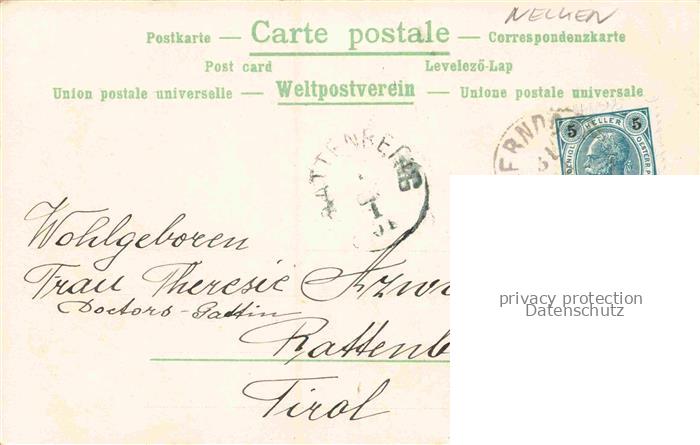 NELKEN
Postkarte — Carte postale — Correspondenzkarte
Post card Levelező-Lap
Union postale universelle — Weltpostverein — Unione postale universale
5 HELLER 5
RATTENBERG
Wohlgeboren
Frau Theresie
Doctors-Gattin
Rattenb
Tirol
privacy protection
Datenschutz